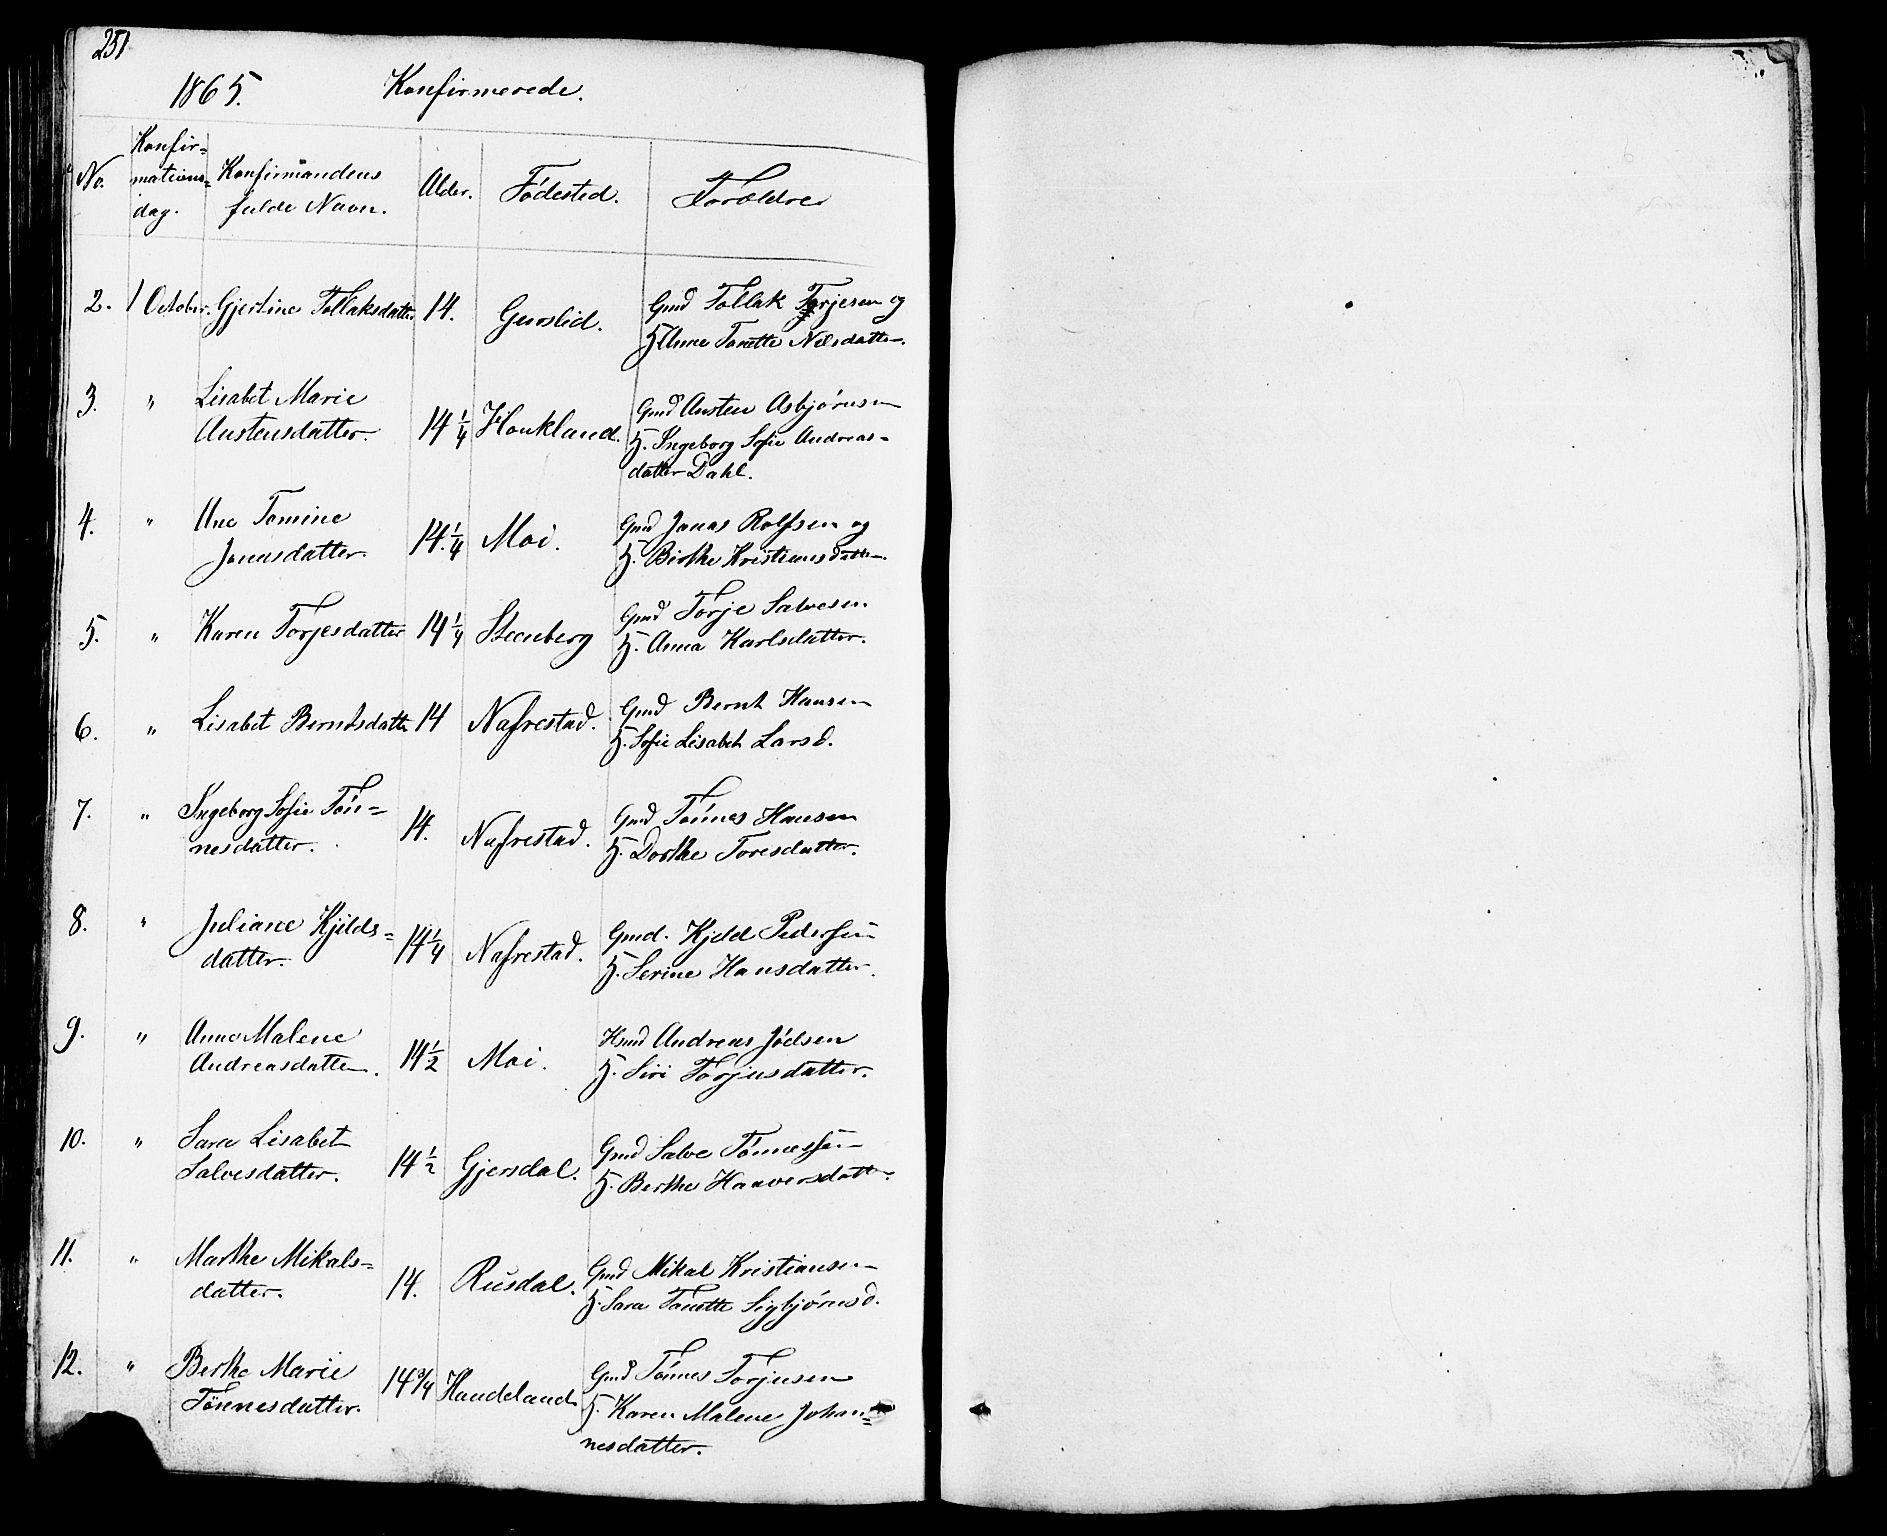 251
1865. Konfirmerede.
No. Konfir= mations= dag. Konfirmandens fulde Navn. Alder. Födested. Forældre
2. 1 October. Gjertine Tollaksdatter 14. Gursslid. Gmd Tollak Torjesen og
H Anne Tonette Nilsdatter.
3. " Lisabet Marie
Austensdatter. 14 1/4 Houkland. Gmd Austen Asbjörnsen
H. Ingeborg Sofie Andreas=
datter Dahl.
4. " Ane Tomine
Jonasdatter. 14. 1/4 Moi. Gmd Jonas Rolfsen og
H. Birthe Kristiansdatter.
5. " Karen Torjesdatter 14 1/4 Steenberg Gmd Torje Salvesen
H. Anna Karlsdatter.
6. " Lisabet Berntsdatter 14 Nafrestad. Gmd Bernt Hansen
H. Sofie Lisabet Larsd.
7. " Ingeborg Sofie Tön=
nesdatter. 14. Nafrestad. Gmd Tönnes Hansen
H. Dorthe Toresdatter.
8. " Juliane Kjilds=
datter. 14 1/4 Nafrestad. Gmd. Kjeld Pedersen
H. Serine Hansdatter.
9. " Anne Malene
Andreasdatter. 14 1/2 Moi. Hsmd Andreas Jödsen
H. Siri Torjusdatter.
10. " Sara Lisabet
Salvesdatter. 14 1/2 Gjersdal. Gmd Salve Tönnessen
H. Berthe Haaversdatter.
11. " Marthe Mikals=
datter. 14. Rusdal. Gmd Mikal Kristiansen
H. Sara Tonette Sigbjörnsd.
12. " Berthe Marie
Tönnesdatter. 14 3/4 Haudeland Gmd Tönnes Torjusen
H. Karen Malene Johan=
nesdatter.